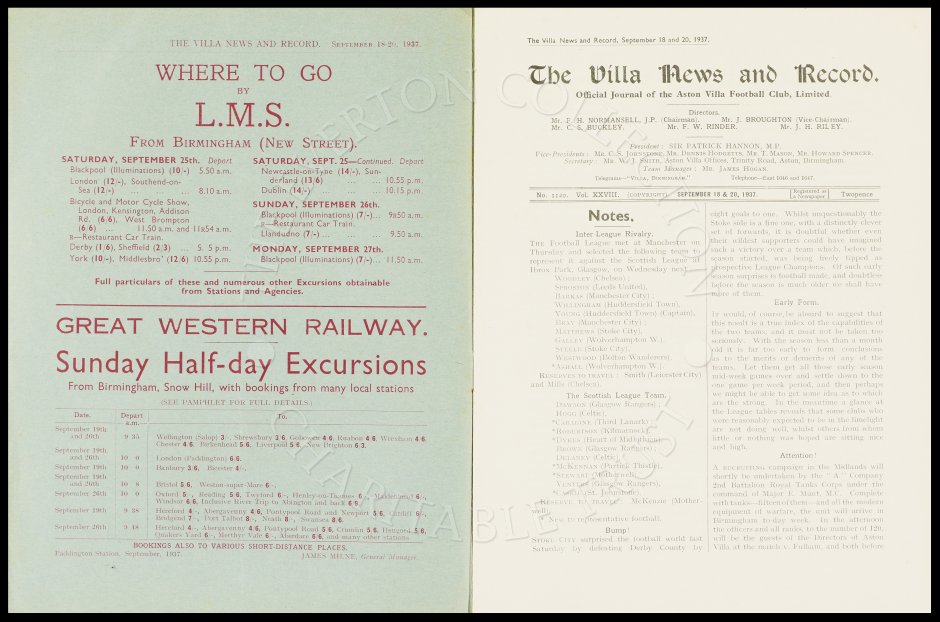 THE VILLA NEWS AND RECORD. SEPTEMBER 18-20, 1937.
WHERE TO GO
BY
L.M.S.
FROM BIRMINGHAM (NEW STREET).
SATURDAY, SEPTEMBER 25th. Depart
Blackpool (Illuminations) (10/-) 5.50 a.m.
London (12/-), Southend-on-
Sea (12/-) ... ... 8.10 a.m.
Bicycle and Motor Cycle Show,
London, Kensington, Addison
Rd. (6/6), West Brompton
(6/6) ... 11.50 a.m. and 11R54 a.m.
R—Restaurant Car Train.
Derby (1/6), Sheffield (2/3) ... S. 5 p.m.
York (10/-), Middlesbro' (12/6) 10.55 p.m.
SATURDAY, SEPT. 25—Continued. Depart
Newcastle-on-Tyne (14/-), Sun-
derland (13/6) ... ... 10.55 p.m.
Dublin (14/-) ... ... ... 10.15 p.m.
SUNDAY, SEPTEMBER 26th.
Blackpool (Illuminations) (7/-)... 9R50 a.m.
R—Restaurant Car Train.
Llandudno (7/-)... ... ... 9.50 a.m.
MONDAY, SEPTEMBER 27th.
Blackpool (Illuminations) (7/-)... 11.50 a.m.
Full particulars of these and numerous other Excursions obtainable
from Stations and Agencies.
GREAT WESTERN RAILWAY.
Sunday Half-day Excursions
From Birmingham, Snow Hill, with bookings from many local stations
(SEE PAMPHLET FOR FULL DETAILS.)
Date. Depart a.m. To.
September 19th
and 26th 9 35 Wellington (Salop) 3/-, Shrewsbury 3/6, Gobowen 4/6, Ruabon 4/6, Wrexham 4/6,
Chester 4/6, Birkenhead 5/6, Liverpool 5/6, New Brighton 6/3.
September 19th
and 26th 10 0 London (Paddington) 6/6.
September 19th 10 0 Banbury 3/6, Bicester 4/-.
September 19th
and 26th 10 8 Bristol 5/6, Weston-super-Mare 6/-.
September 26th 10 0 Oxford 5/-, Reading 5/6, Twyford 6/-, Henley-on-Thames 6/-, Maidenhead 6/-,
Windsor 6/6, Inclusive River Trip to Abington and back 6/9.
September 19th 9 38 Hereford 4/-, Abergavenny 4/6, Pontypool Road and Newport 5/6, Cardiff 6/-,
Bridgend 7/-, Port Talbot 8/-, Neath 8/-, Swansea 8/6.
September 26th 9 48 Hereford 4/-, Abergavenny 4/6, Pontypool Road 5/6, Crumlin 5/6, Hengoed 5/6,
Quakers Yard 6/-, Merthyr Vale 6/-, Aberdare 6/6, and many other stations.
BOOKINGS ALSO TO VARIOUS SHORT-DISTANCE PLACES.
Paddington Station, September, 1937. JAMES MILNE, General Manager.
The Villa News and Record, September 18 and 20, 1937.
The Villa News and Record.
Official Journal of the Aston Villa Football Club, Limited.
Directors.
Mr. F. H. NORMANSELL, J.P. (Chairman). Mr. J. BROUGHTON (Vice-Chairman).
Mr. C. S. BUCKLEY. Mr. F. W. RINDER. Mr. J. H. RILEY.
President: SIR PATRICK HANNON, M.P.
Vice-Presidents: MR. C. S. JOHNSTONE, MR. DENNIS HODGETTS, MR. T. MASON, MR. HOWARD SPENCER.
Secretary: MR. W. J. SMITH, Aston Villa Offices, Trinity Road, Aston, Birmingham.
Team Manager: MR. JAMES HOGAN.
Telegrams—"VILLA, BIRMINGHAM." Telephone—East 1046 and 1047.
Vol. XXVIII. (COPYRIGHT) SEPTEMBER 18 & 20, 1937. [Registered as a Newspaper] Twopence
Notes.
Inter League Rivalry.
THE Football League met at Manchester on
Thursday and selected the following team to
represent it against the Scottish League at
Ibrox Park, Glasgow, on Wednesday next
WOODLEY (Chelsea);
SPROSTON (Leeds United),
BARKAS (Manchester City);
WILLINGHAM (Huddersfield Town),
YOUNG (Huddersfield Town) (Captain),
BRAY (Manchester City);
MATTHEWS (Stoke City),
GALLEY (Wolverhampton W.),
STEELE (Stoke City),
WESTWOOD (Bolton Wanderers),
*ASHALL (Wolverhampton W.).
RESERVES TO TRAVEL: Smith (Leicester City)
and Mills (Chelsea).
The Scottish League Team.
DAWSON (Glasgow Rangers);
HOGG (Celtic),
*CARABINE (Third Lanark);
*ROBERTSON (Kilmarnock),
*DYKES (Heart of Midlothian),
BROWN (Glasgow Rangers);
DELANEY (Celtic),
*MCKENNAN (Partick Thistle),
*STEWART (Motherwell),
VENTERS (Glasgow Rangers),
(St. Johnstone).
RESERVE TO TRAVEL: McKenzie (Mother-
well).
* New to representative football.
Bump!
STOKE CITY surprised the football world last
Saturday by defeating Derby County by
eight goals to one. Whilst unquestionably the
Stoke side is a fine one, with a distinctly clever
set of forwards, it is doubtful whether even
their wildest supporters could have imagined
such a victory over a team which, before the
season started, was being freely tipped as
prospective League Champions. Of such early
season surprises is football made, and doubtless
before the season is much older we shall have
more of them.
Early Form.
IT would, of course, be absurd to suggest that
this result is a true index of the capabilities of
the two teams, and it must not be taken too
seriously. With the season less than a month
old it is far too early to form conclusions
as to the merits or demerits of any of the
teams. Let them get all those early season
mid-week games over and settle down to the
one game per week period, and then perhaps
we might be able to get some idea as to which
are the strong. In the meantime a glance at
the League tables reveals that some clubs who
were reasonably expected to be in the limelight
are not doing well, whilst others from whom
little or nothing was hoped are sitting nice
and high.
Attention!
A RECRUITING campaign in the Midlands will
shortly be undertaken by the "A" Company
2nd Battalion Royal Tanks Corps under the
command of Major E. Maut, M.C. Complete
with tanks—fifteen of them—and all the modern
equipment of warfare, the unit will arrive in
Birmingham to-day week. In the afternoon
the officers and all ranks, to the number of 120,
will be the guests of the Directors of Aston
Villa at the match v. Fulham, and both before